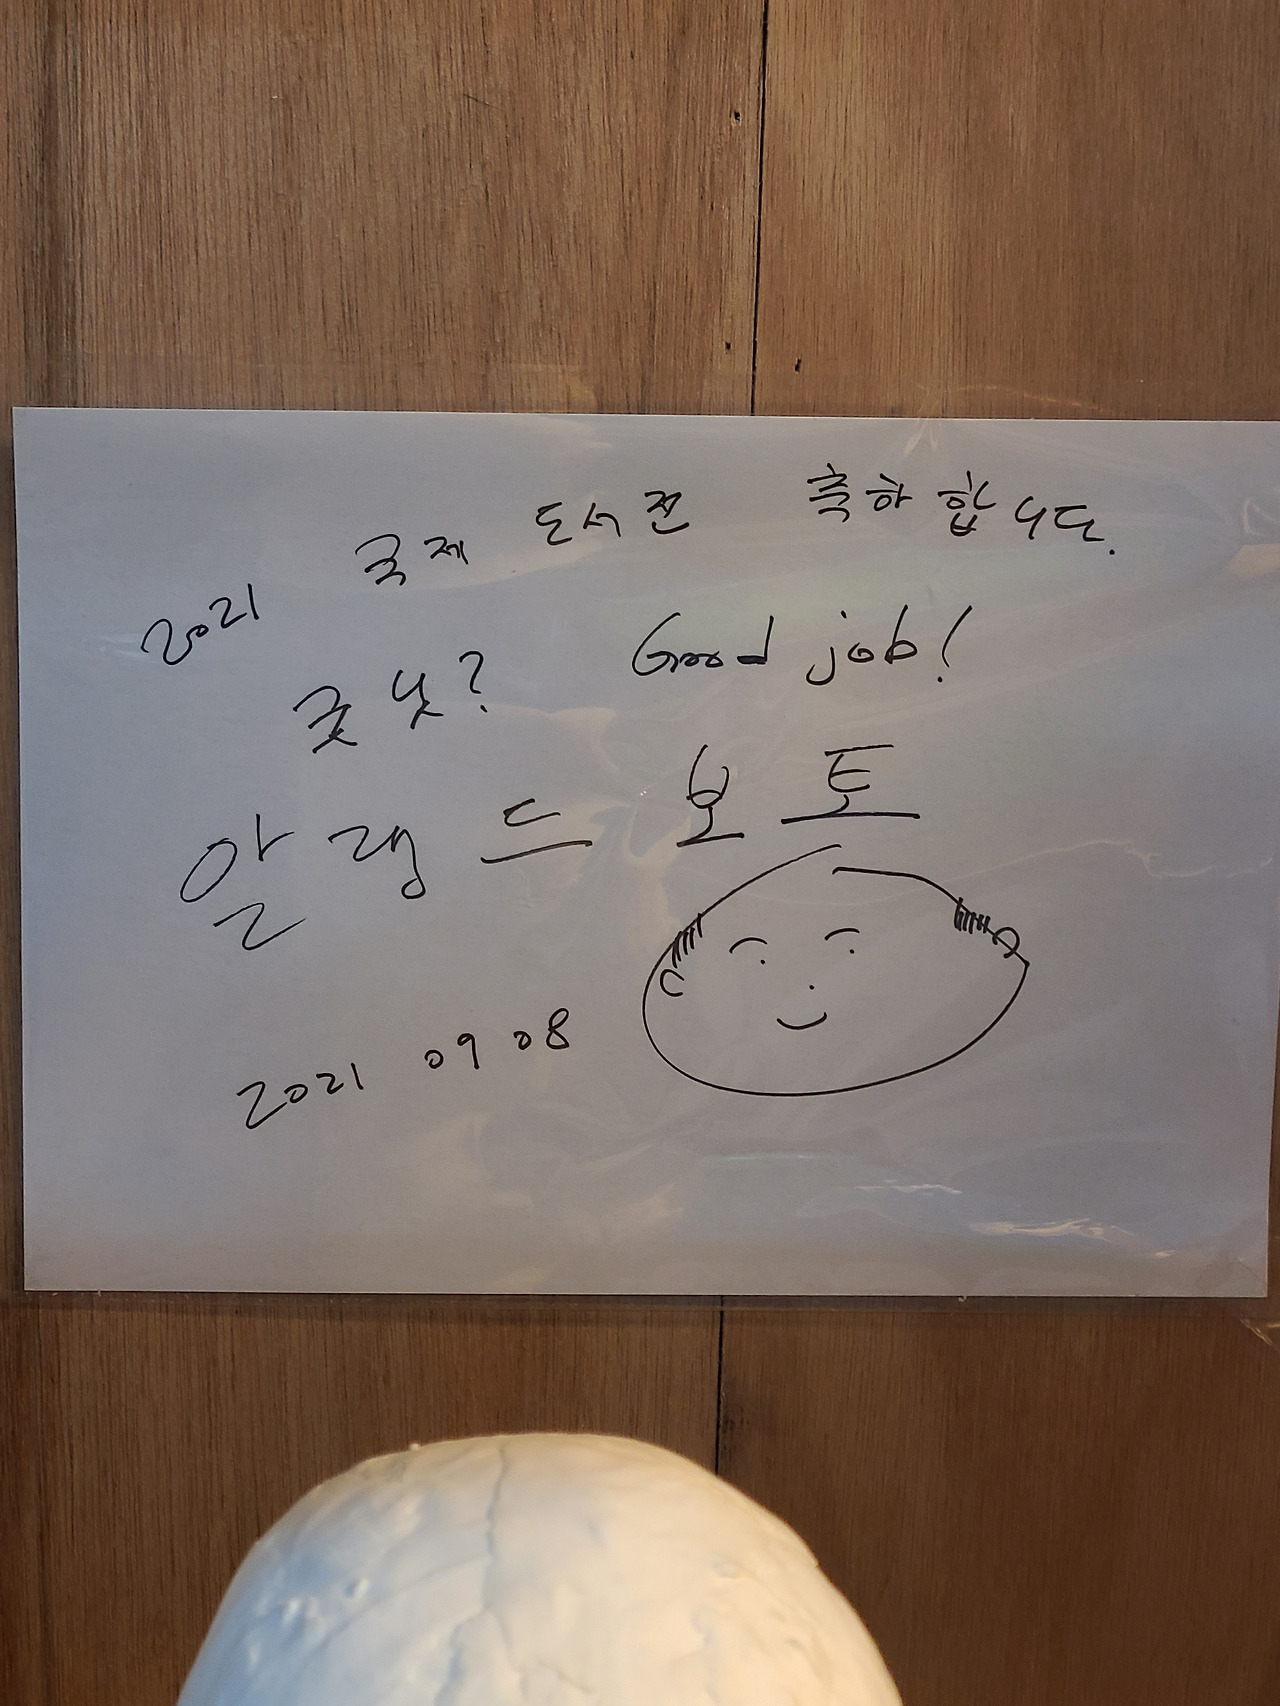 2021 국제 도서전 축하합니다.
긋닛? Good job!
알랭 드 보토
2021 09 08